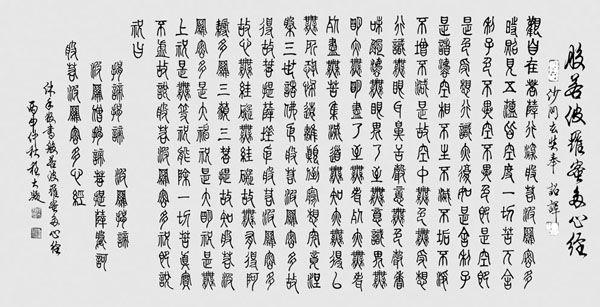 般若波羅蜜多心經
沙門玄奘奉詔譯
觀自在菩薩行深般若波羅蜜多
時照見五蘊皆空度一切苦厄舍
利子色不異空空不異色色即是空空即
是色受想行識亦復如是舍利子
是諸法空相不生不滅不垢不淨
不增不減是故空中無色無受想
行識無眼耳鼻舌身意無色聲香
味觸法無眼界乃至無意識界無
無明亦無無明盡乃至無老死亦無
盡無苦集滅道無智亦無得以
無所恐怖遠離顛倒夢想究竟涅
槃三世諸佛依般若波羅蜜多故
得故菩提薩埵依般若波羅蜜多
故心無罣礙無罣礙故無有得阿
耨多羅三藐三菩提故知般若波
羅蜜多是大神咒是大明咒是無
上咒是無等等咒能除一切苦真實
不虛故說般若波羅蜜多咒即說
咒曰
揭諦揭諦 波羅揭諦
波羅僧揭諦 菩提薩婆訶
般若波羅蜜多心經
敬書般若波羅蜜多心經
丙申仲秋